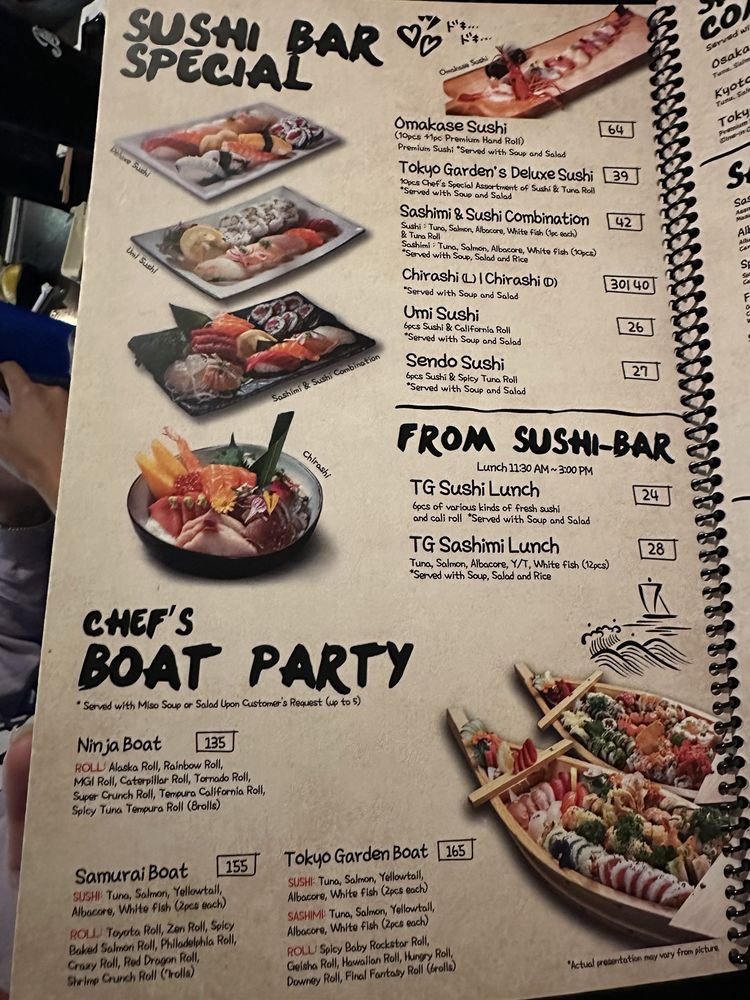 SUSHI BAR
SPECIAL
ドキ...
ドキ...
Omakase Sushi
Deluxe Sushi
Umi Sushi
Sashimi & Sushi Combination
Chirashi
Omakase Sushi 64
(10pcs +1pc Premium Hand Roll)
Premium Sushi *Served with Soup and Salad
Tokyo Garden's Deluxe Sushi 39
10pcs Chef's Special Assortment of Sushi & Tuna Roll
*Served with Soup and Salad
Sashimi & Sushi Combination 42
Sushi : Tuna, Salmon, Albacore, White fish (1pc each)
& Tuna Roll
Sashimi : Tuna, Salmon, Albacore, White fish (10pcs)
*Served with Soup, Salad and Rice
Chirashi (L) | Chirashi (D) 30| 40
*Served with Soup and Salad
Umi Sushi 26
6pcs Sushi & California Roll
*Served with Soup and Salad
Sendo Sushi 27
6pcs Sushi & Spicy Tuna Roll
*Served with Soup and Salad
FROM SUSHI-BAR
Lunch 11:30 AM ~ 3:00 PM
TG Sushi Lunch 24
6pcs of various kinds of fresh sushi
and cali roll *Served with Soup and Salad
TG Sashimi Lunch 28
Tuna, Salmon, Albacore, Y/T, White fish (12pcs)
*Served with Soup, Salad and Rice
CHEF'S
BOAT PARTY
* Served with Miso Soup or Salad Upon Customer's Request (up to 5)
Ninja Boat 135
ROLL: Alaska Roll, Rainbow Roll,
MGI Roll, Caterpillar Roll, Tornado Roll,
Super Crunch Roll, Tempura California Roll,
Spicy Tuna Tempura Roll (8rolls)
Samurai Boat 155
SUSHI: Tuna, Salmon, Yellowtail,
Albacore, White fish (2pcs each)
ROLL: Toyota Roll, Zen Roll, Spicy
Baked Salmon Roll, Philadelphia Roll,
Crazy Roll, Red Dragon Roll,
Shrimp Crunch Roll (7rolls)
Tokyo Garden Boat 165
SUSHI: Tuna, Salmon, Yellowtail,
Albacore, White fish (2pcs each)
SASHIMI: Tuna, Salmon, Yellowtail,
Albacore, White fish (2pcs each)
ROLL: Spicy Baby Rockstar Roll,
Geisha Roll, Hawaiian Roll, Hungry Roll,
Downey Roll, Final Fantasy Roll (6rolls)
*Actual presentation may vary from picture
Served
Osaka
Tuna, Salm
Kyoto
Tuna, Sal
Tokyo